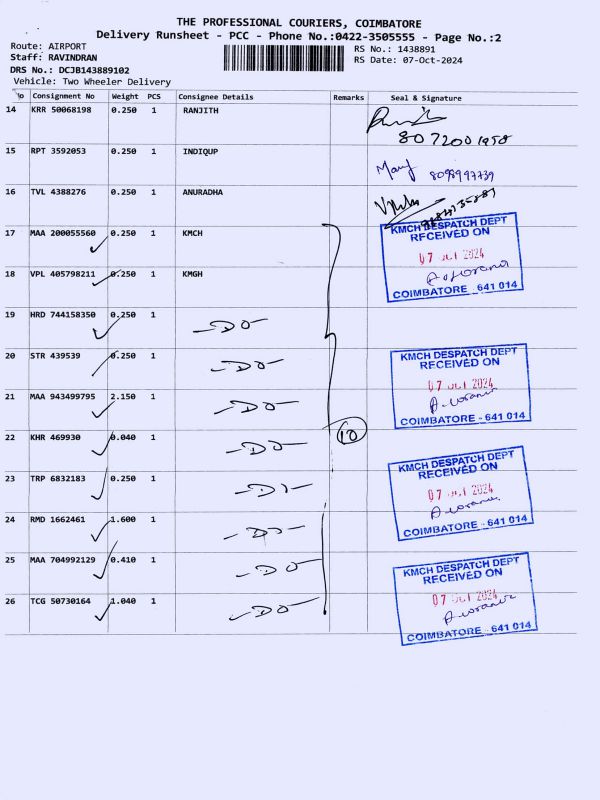 THE PROFESSIONAL COURIERS, COIMBATORE
Delivery Runsheet - PCC - Phone No.:0422-3505555 - Page No.:2
Route: AIRPORT
RS No.: 1438891
Staff: RAVINDRAN
RS Date: 07-Oct-2024
DRS No.: DCJB143889102
Vehicle: Two Wheeler Delivery
No Consignment No Weight PCS Consignee Details Remarks Seal & Signature
14 KRR 50068198 0.250 1 RANJITH
8072001958
15 RPT 3592053 0.250 1 INDIQUP
8098997739
16 TVL 4388276 0.250 1 ANURADHA
17 MAA 200055560 0.250 1 KMCH
KMCH DESPATCH DEPT
RECEIVED ON
07 OCT 2024
COIMBATORE - 641 014
18 VPL 405798211 0.250 1 KMGH
19 HRD 744158350 0.250 1 -DO-
20 STR 439539 0.250 1 -DO-
KMCH DESPATCH DEPT
RECEIVED ON
07 OCT 2024
COIMBATORE - 641 014
21 MAA 943499795 2.150 1 -DO-
10
22 KHR 469930 0.040 1 -DO-
23 TRP 6832183 0.250 1 -DO-
KMCH DESPATCH DEPT
RECEIVED ON
07 OCT 2024
COIMBATORE - 641 014
24 RMD 1662461 1.600 1 -DO-
25 MAA 704992129 0.410 1 -DO-
KMCH DESPATCH DEPT
RECEIVED ON
07 OCT 2024
COIMBATORE - 641 014
26 TCG 50730164 1.040 1 -DO-